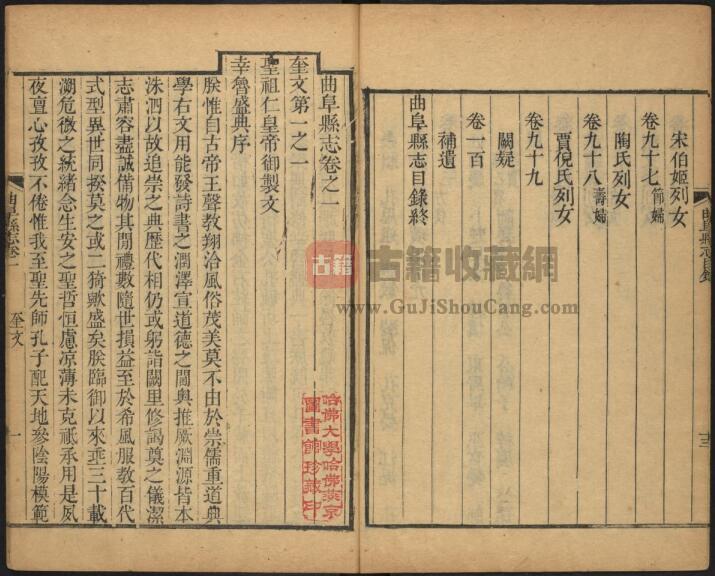 宋伯姬列女
卷九十七 節婦
陶氏列女
卷九十八 壽婦
賈倪氏列女
卷九十九
闕疑
卷一百
補遺
曲阜縣志目錄終
曲阜縣志目錄
十三
曲阜縣志卷之一
奎文第一之一
聖祖仁皇帝御製文
幸魯盛典序
朕惟自古帝王聲教翔洽風俗茂美莫不由於崇儒重道典
學右文用能發詩書之潤澤宣道德之閫奧推厥淵源皆本
洙泗以故追崇之典歷代相仍或躬詣闕里修謁奠之儀潔
志肅容盡誠備物其閒禮數隨世損益至於希風服教百代
式型異世同揆莫之或二猗歟盛矣朕臨御以來垂三十載
溯危微之統緒念生安之聖哲恒慮凉薄未克祗承用是夙
夜亶心孜孜不倦惟我至聖先師孔子配天地參陰陽模範
曲阜縣志卷一
奎文
一
哈佛大學哈佛燕京
圖書館珍藏印
古籍
古籍收藏網
www.GuJiShouCang.com